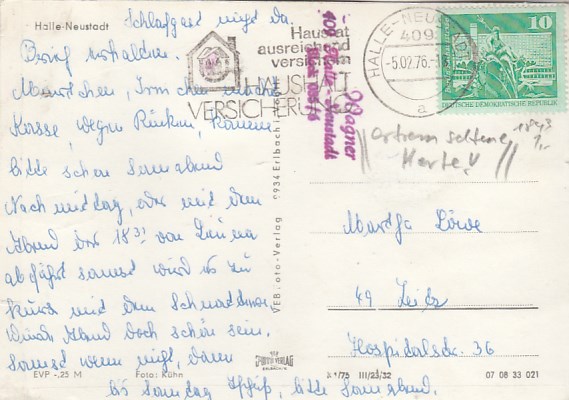 Halle-Neustadt
Schlafgast nicht da.
Brief erhalten.
Kasse, wegen Rücken, kommen
bitte schon Sonnabend
Nachmittag, oder mit dem
Abend der 18 31 von Leuna
abfährt sonst wird es zu
kurz mit dem
Abend doch schön sein.
Sonst wenn nicht, dann
bis Sonntag Tschüß, bitte Sonnabend.
EVP -,25 M
Foto: Kühn
VEB Foto-Verlag 9934 Erlbach
Hausrat
ausreichend
versichern
HAUSHALT
VERSICHERUNG
Wagner
409 Halle-Neustadt
HALLE-NEUSTADT
409
-5.02.76
a
10
DEUTSCHE DEMOKRATISCHE REPUBLIK
extrem seltene
Karte!
Martha Löwe
49 Zeitz
Hospitalstr. 36
1/75 III/23/32
07 08 33 021